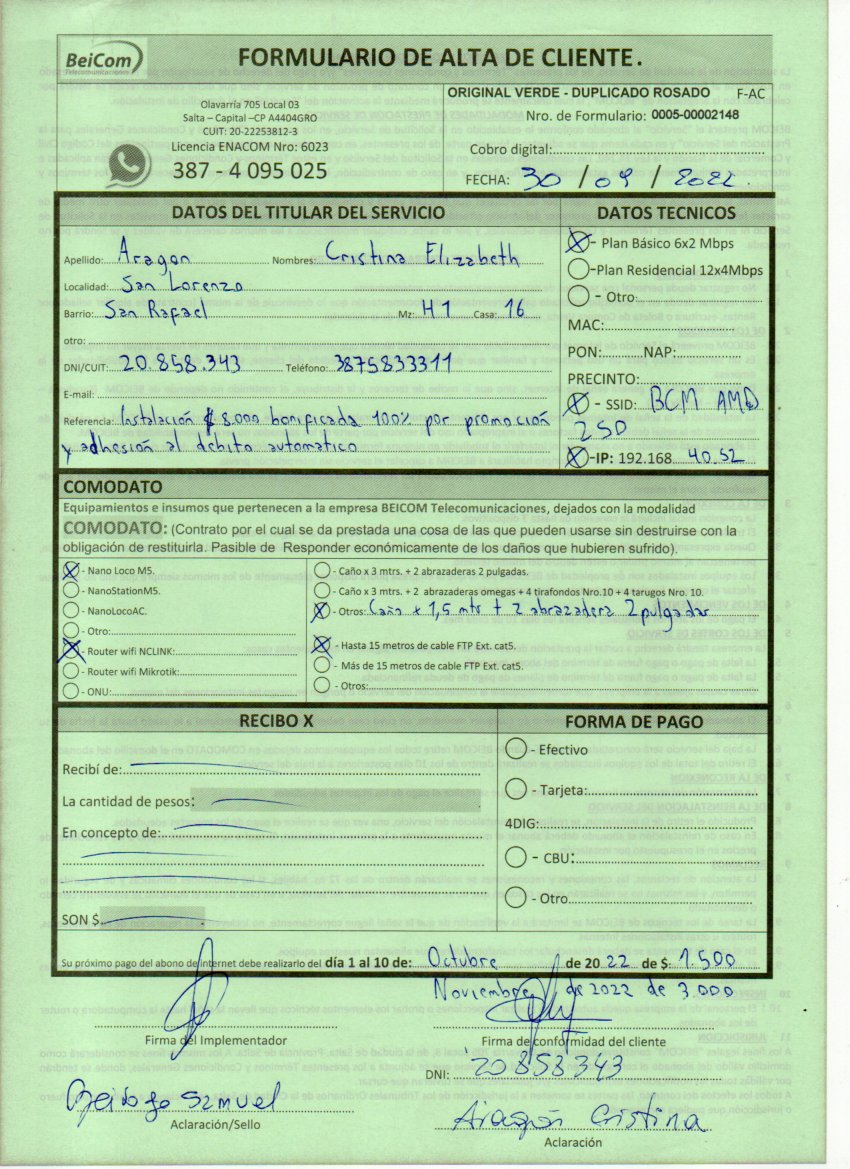 BeiCom
Telecomunicaciones
FORMULARIO DE ALTA DE CLIENTE.
Olavarría 705 Local 03
Salta – Capital –CP A4404GRO
CUIT: 20-22253812-3
Licencia ENACOM Nro: 6023
387 - 4 095 025
ORIGINAL VERDE - DUPLICADO ROSADO F-AC
Nro. de Formulario: 0005-00002148
Cobro digital:
FECHA: 30 / 09 / 2022
DATOS DEL TITULAR DEL SERVICIO
Apellido: Aragon Nombres: Cristina Elizabeth
Localidad: San Lorenzo
Barrio: San Rafael Mz: H1 Casa: 16
otro:
DNI/CUIT: 20.858.343 Teléfono: 3875833311
E-mail:
Referencia: Instalación $ 8.000 bonificada 100% por promoción
y adhesión al débito automatico
DATOS TECNICOS
- Plan Básico 6x2 Mbps
-Plan Residencial 12x4Mbps
- Otro:
MAC:
PON: NAP:
PRECINTO:
- SSID: BCM AMD
250
-IP: 192.168. 40.52
COMODATO
Equipamientos e insumos que pertenecen a la empresa BEICOM Telecomunicaciones, dejados con la modalidad
COMODATO: (Contrato por el cual se da prestada una cosa de las que pueden usarse sin destruirse con la
obligación de restituirla. Pasible de Responder económicamente de los daños que hubieren sufrido).
- Nano Loco M5.
- NanoStationM5.
- NanoLocoAC.
- Otro:
- Router wifi NCLINK:
- Router wifi Mikrotik:
- ONU:
- Caño x 3 mtrs. + 2 abrazaderas 2 pulgadas.
- Caño x 3 mtrs. + 2 abrazaderas omegas + 4 tirafondos Nro.10 + 4 tarugos Nro. 10.
- Otros: Caño x 1,5 mts + 2 abrazadera 2 pulgadas
- Hasta 15 metros de cable FTP Ext. cat5.
- Más de 15 metros de cable FTP Ext. cat5.
- Otros:
RECIBO X
Recibí de:
La cantidad de pesos:
En concepto de:
SON $
FORMA DE PAGO
- Efectivo
- Tarjeta:
4DIG:
- CBU:
- Otro
Su próximo pago del abono de internet debe realizarlo del día 1 al 10 de: Octubre de 20 22 de $: 1.500
Noviembre de 2022 de 3.000
Firma del Implementador
Firma de conformidad del cliente
DNI: 20858343
Samuel
Aclaración/Sello
Aragón Cristina
Aclaración